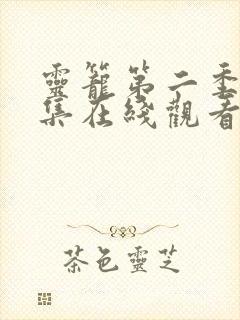 靈籠第二季
集在綫觀看
茶色靈芝